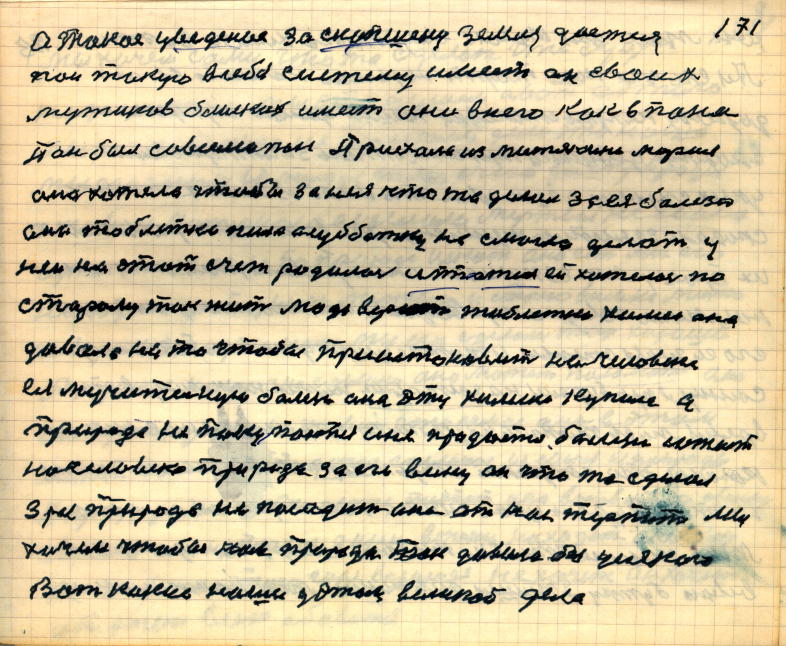 171
А такое уведение за скупщену земля дается
кои такую в себя систему имеет он своих
мужиков близких имеет они в него как в пана
Пан был совсем пан Приехала из Митякини Мария
она хотела чтобы за нея кто то делал за ея болезн
она таблетки пила а субботку не смогла делат у
неи на этот счет родилос и ей хотелос по
старому так жит люди верят таблетки химии она
давала на то чтобы приостоновит на человеке
ея мучителную болезн она эту химию купила а
природа не покупается и не продается болезн
на человека природа за его вину он что то сделал
зря природа не посадит она от нас терпит Мы
хочем чтобы нам природа так давала бы
Вот какие наши у этом великое дела